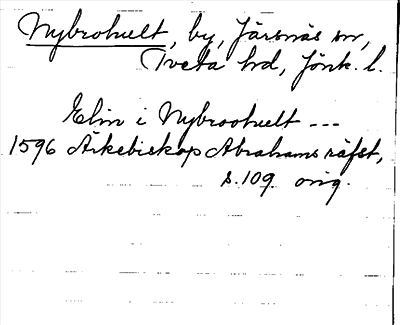 Nybrohult, by, Järsnäs sn,
Tveta hd, Jönk. l.
Elin i Nybroohult ---
1596 Ärkebiskop Abrahams räfst,
s. 109 orig.